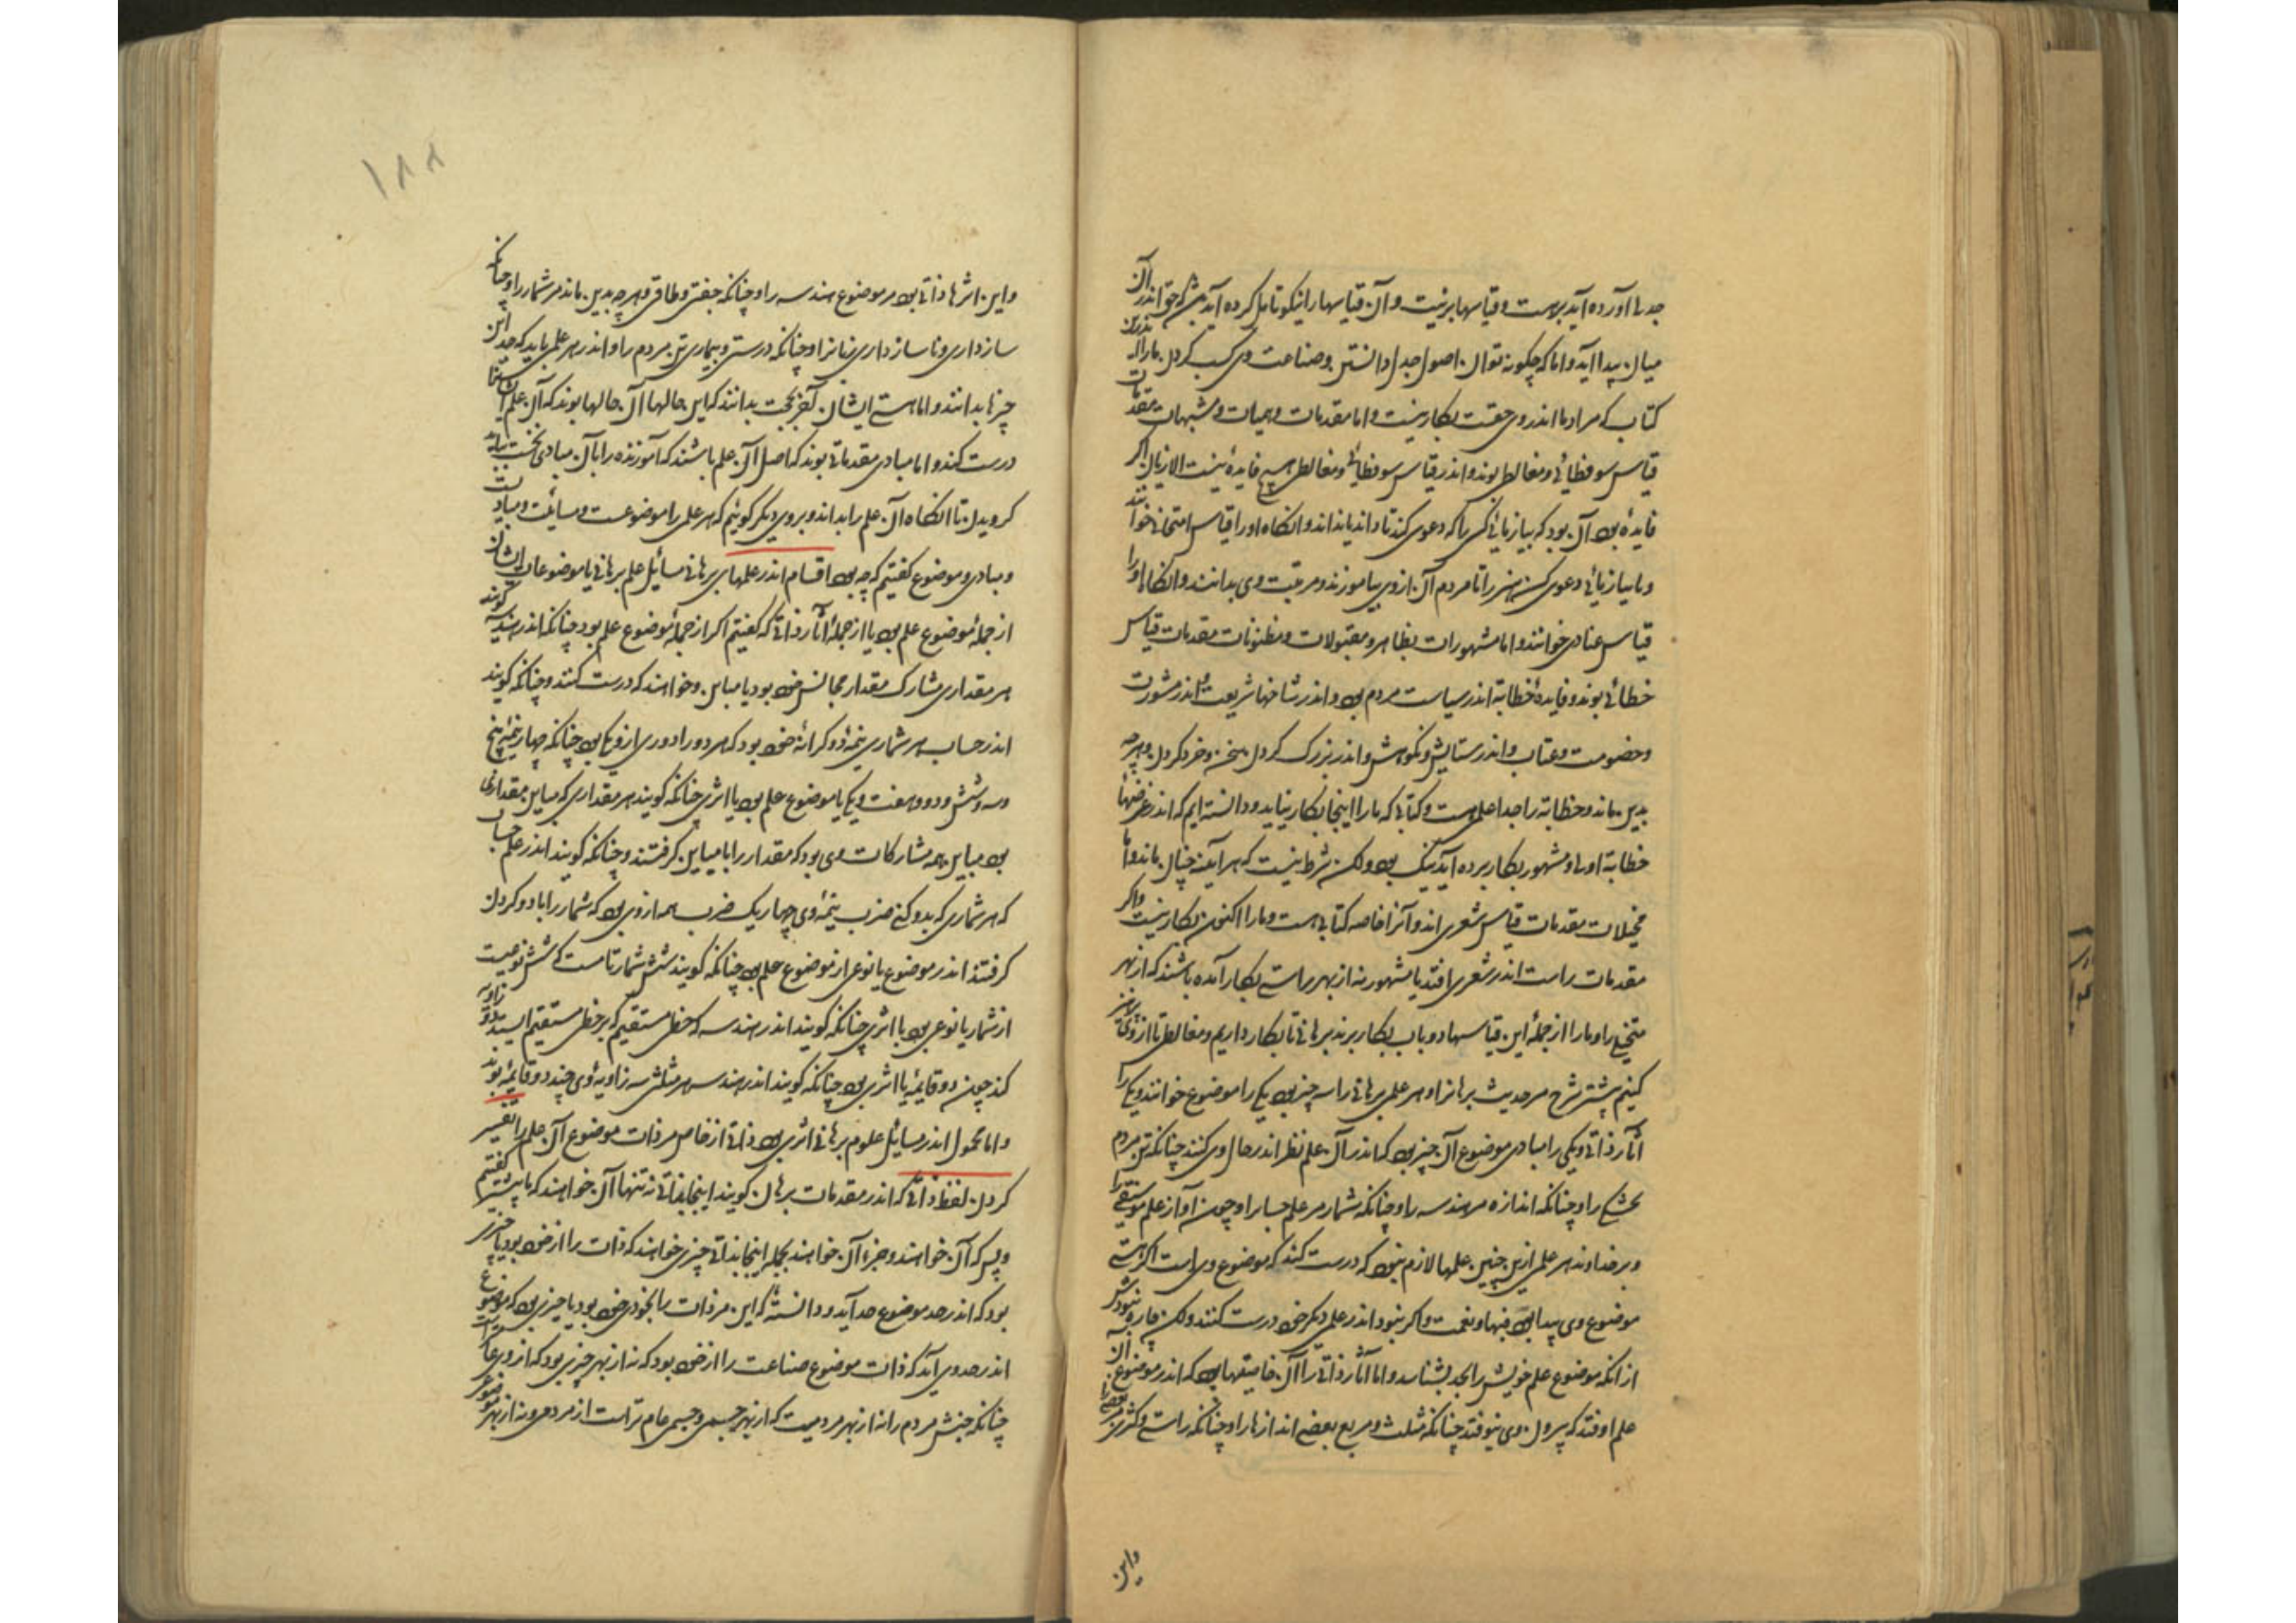 جدلها آورده آید برست و قیاسها بر نیت و آن قیاسها را نیکو تامل کرده آید شک حق اندر آن
میان پیدا آید و اما که چگونه توان اصول جدل دانستن و صناعت وی کسب کردن ما را اندرین
کتاب که مراد ما اندر وی حقست بکار نیست و اما مقدمات وهمیات و مشبهات مقدمات
قیاس سوفسطائی و مغالطی بوند و اندر قیاس سوفسطائی و مغالطی هیچ فایده نیست الا زیان اگر
فایده بود آن بود که بیازمائی کسی را که دعوی کند تا داند یا نداند و آنکاه او را قیاس امتحانی خوانند
و یا بیازمائی دعوی کن هنر را تا مردم آن از وی بیاموزند و مرتبت وی بدانند و آنکاه او را
قیاس عنادی خوانند و اما مشهورات بظاهر و مقبولات و مظنونات مقدمات قیاس
خطابی بوند و فایدۀ خطابة اندر سیاست مردم بود و اندر شاخهای شریعت و اندر مشورت
و خصومت و عتاب و اندر ستایش و نکوهش و اندر بزرگ کردن سخن و خرد کردن و هرچه
بدین ماند و خطابة را جدا علمیست و کتابی که ما را اینجا بکار نیاید و دانسته ایم که اندر غرضهاء
خطابة اولی و مشهور بکار برده آید نیک بود ولکن شرط نیست که هر آینه چنان ماند و اما
مخیلات مقدمات قیاس شعری اند و آنرا خاصه کتابی هست و ما را اکنون بکار نیست و اگر
مقدمات راست اندر شعر افتد یا مشهور نه از بهر راستی بکار آمده باشند که از بهر
متخیلی را و ما را از جملۀ این قیاسها دو باب بکار برند برهانی تا بکار داریم و مغالطی تا از وی پرهیز
کنیم بیشتر شرح مر حدیث برهانرا و هر علمی برهانی را سه چیز بود یکی را موضوع خوانند و یکی را
آثار ذاتی و یکی را مبادی موضوع آن چیز بود که اندر آن علم نظر اندر حال وی کنند چنانکه تن مردم
بجشکی را و چنانکه اندازه مر هندسه را و چنانکه شمار مر علم حساب را و چون آواز علم موسیقی را
و بر خداوند هر علمی ازین چنین علمها لازم نبود که درست کند که موضوع وی است اگر هستی
موضوع وی پیدا بود فبها و نعمت و اگر نبود اندر علمی دیگر خود درست کنند ولکن چاره نبودش
از آنکه موضوع علم خویش را بحد بشناسد و اما آثار ذاتی را آن خاصیتها بود که اندر موضوع آن
علم اوفتد که بیرون وی نیوفتد چنانکه مثلث و مربع بعضی اندازها را و چنانکه راستی و کژی مر بعضی را
واین
۱۸۸
و این اثرها ذاتی بود مر موضوع هندسه را و چنانکه جفتی و طاقی و هرچه بدین ماند مر شمار را و چنانکه
سازداری و ناسازداری زبانرا و چنانکه درستی و بیماری تن مردم را و اندر هر علمی باید که حد این
چیزها بدانند و اما هستی ایشان بآخر بحث بدانند که این حالها آن حالها بوند که آن علم ایشانرا
درست کند و اما مبادی مقدماتی بوند که اصل آن علم باشند که آموزنده را بآن مبادی نخست بباید
گرویدن تا آنکاه آن علم را بداند و بروی دیگر گوئیم که هر علمی را موضوعست و مسایلست و مبادیست
و مبادی و موضوع گفتیم که چه بود اقسام اندر علمهای برهانی مسائل علم برهانی یا موضوعات ایشان
از جملۀ موضوع علم بود یا از جملۀ آثار ذاتی که گفتیم اگر از جملۀ موضوع علم بود چنانکه اندر هندسه گویند
هر مقداری مشارک مقدار مجانس خود بود یا مباین و خواهند که درست کنند و چنانکه گویند
اندر حساب هر شماری نیمۀ دو کرانۀ خود بود که هر دو را دوری از وی یکی بود چنانکه چهار نیمۀ پنج
و سه و شش و دو و هفت و یکی یا موضوع علم بود یا اثری چنانکه گویند هر مقداری که مباین مقداری
بود مباین همه مشارکات وی بود که مقدار را با مباین گرفتند و چنانکه گویند اندر علم حساب
که هر شماری که بدو کنی ضرب نیمۀ وی چهار یک ضرب همه از وی بود که شمار را با دو کردن
گرفتند اندر موضوع یا نوعی از موضوع علم بود چنانکه گویند شش شمار تامست که شش نوعیست
از شمار یا نوعی بود با اثری چنانکه گویند اندر هندسه که خطی مستقیم که بر خطی مستقیم ایستد دو زاویه
کند چون دو قایمه یا اثری بود چنانکه گویند اندر هندسه هر مثلثی سه زاویۀ وی چند دو قایمه بوند
و اما محمول اندر مسایل علوم برهانی اثری بود ذاتی از خاص مر ذات موضوع آن علم را تفسیر
کردن لفظ ذاتی که اندر مقدمات برهان گویند اینجا بذاتی نه تنها آن خواهند که ما پیشتر گفتیم
و بس که آن خواهند و جز آن خواهند بجمله اینجا بذاتی چیزی خواهند که ذات را از خود بود یا چیزی
بود که اندر حد موضوع حد آید و دانسته که این مر ذات را بخودی خود بود یا چیزی بود که موضوع
اندر حد وی آید که ذات موضوع صناعت را از خود بود که نه از بهر چیزی بود که از وی عامتر است
چنانکه جنبش مردم را نه از بهر مردمیست که از بهر جسمی و جسمی عام تر است از مردمی و نه از بهر موضوعی